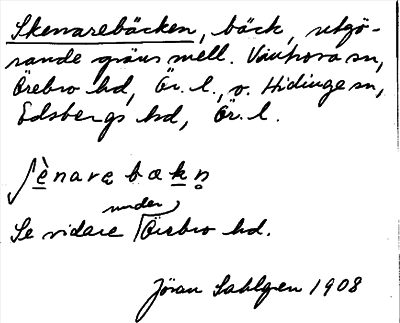 Skenarebäcken, bäck, utgö-
rande gräns mell. Vintrosa sn,
Örebro hd, Ör. l., o. Hidinge sn,
Edsbergs hd, Ör. l.
ʃènarɐ bækn̥
under
Se vidare Örebro hd.
Jöran Sahlgren 1908